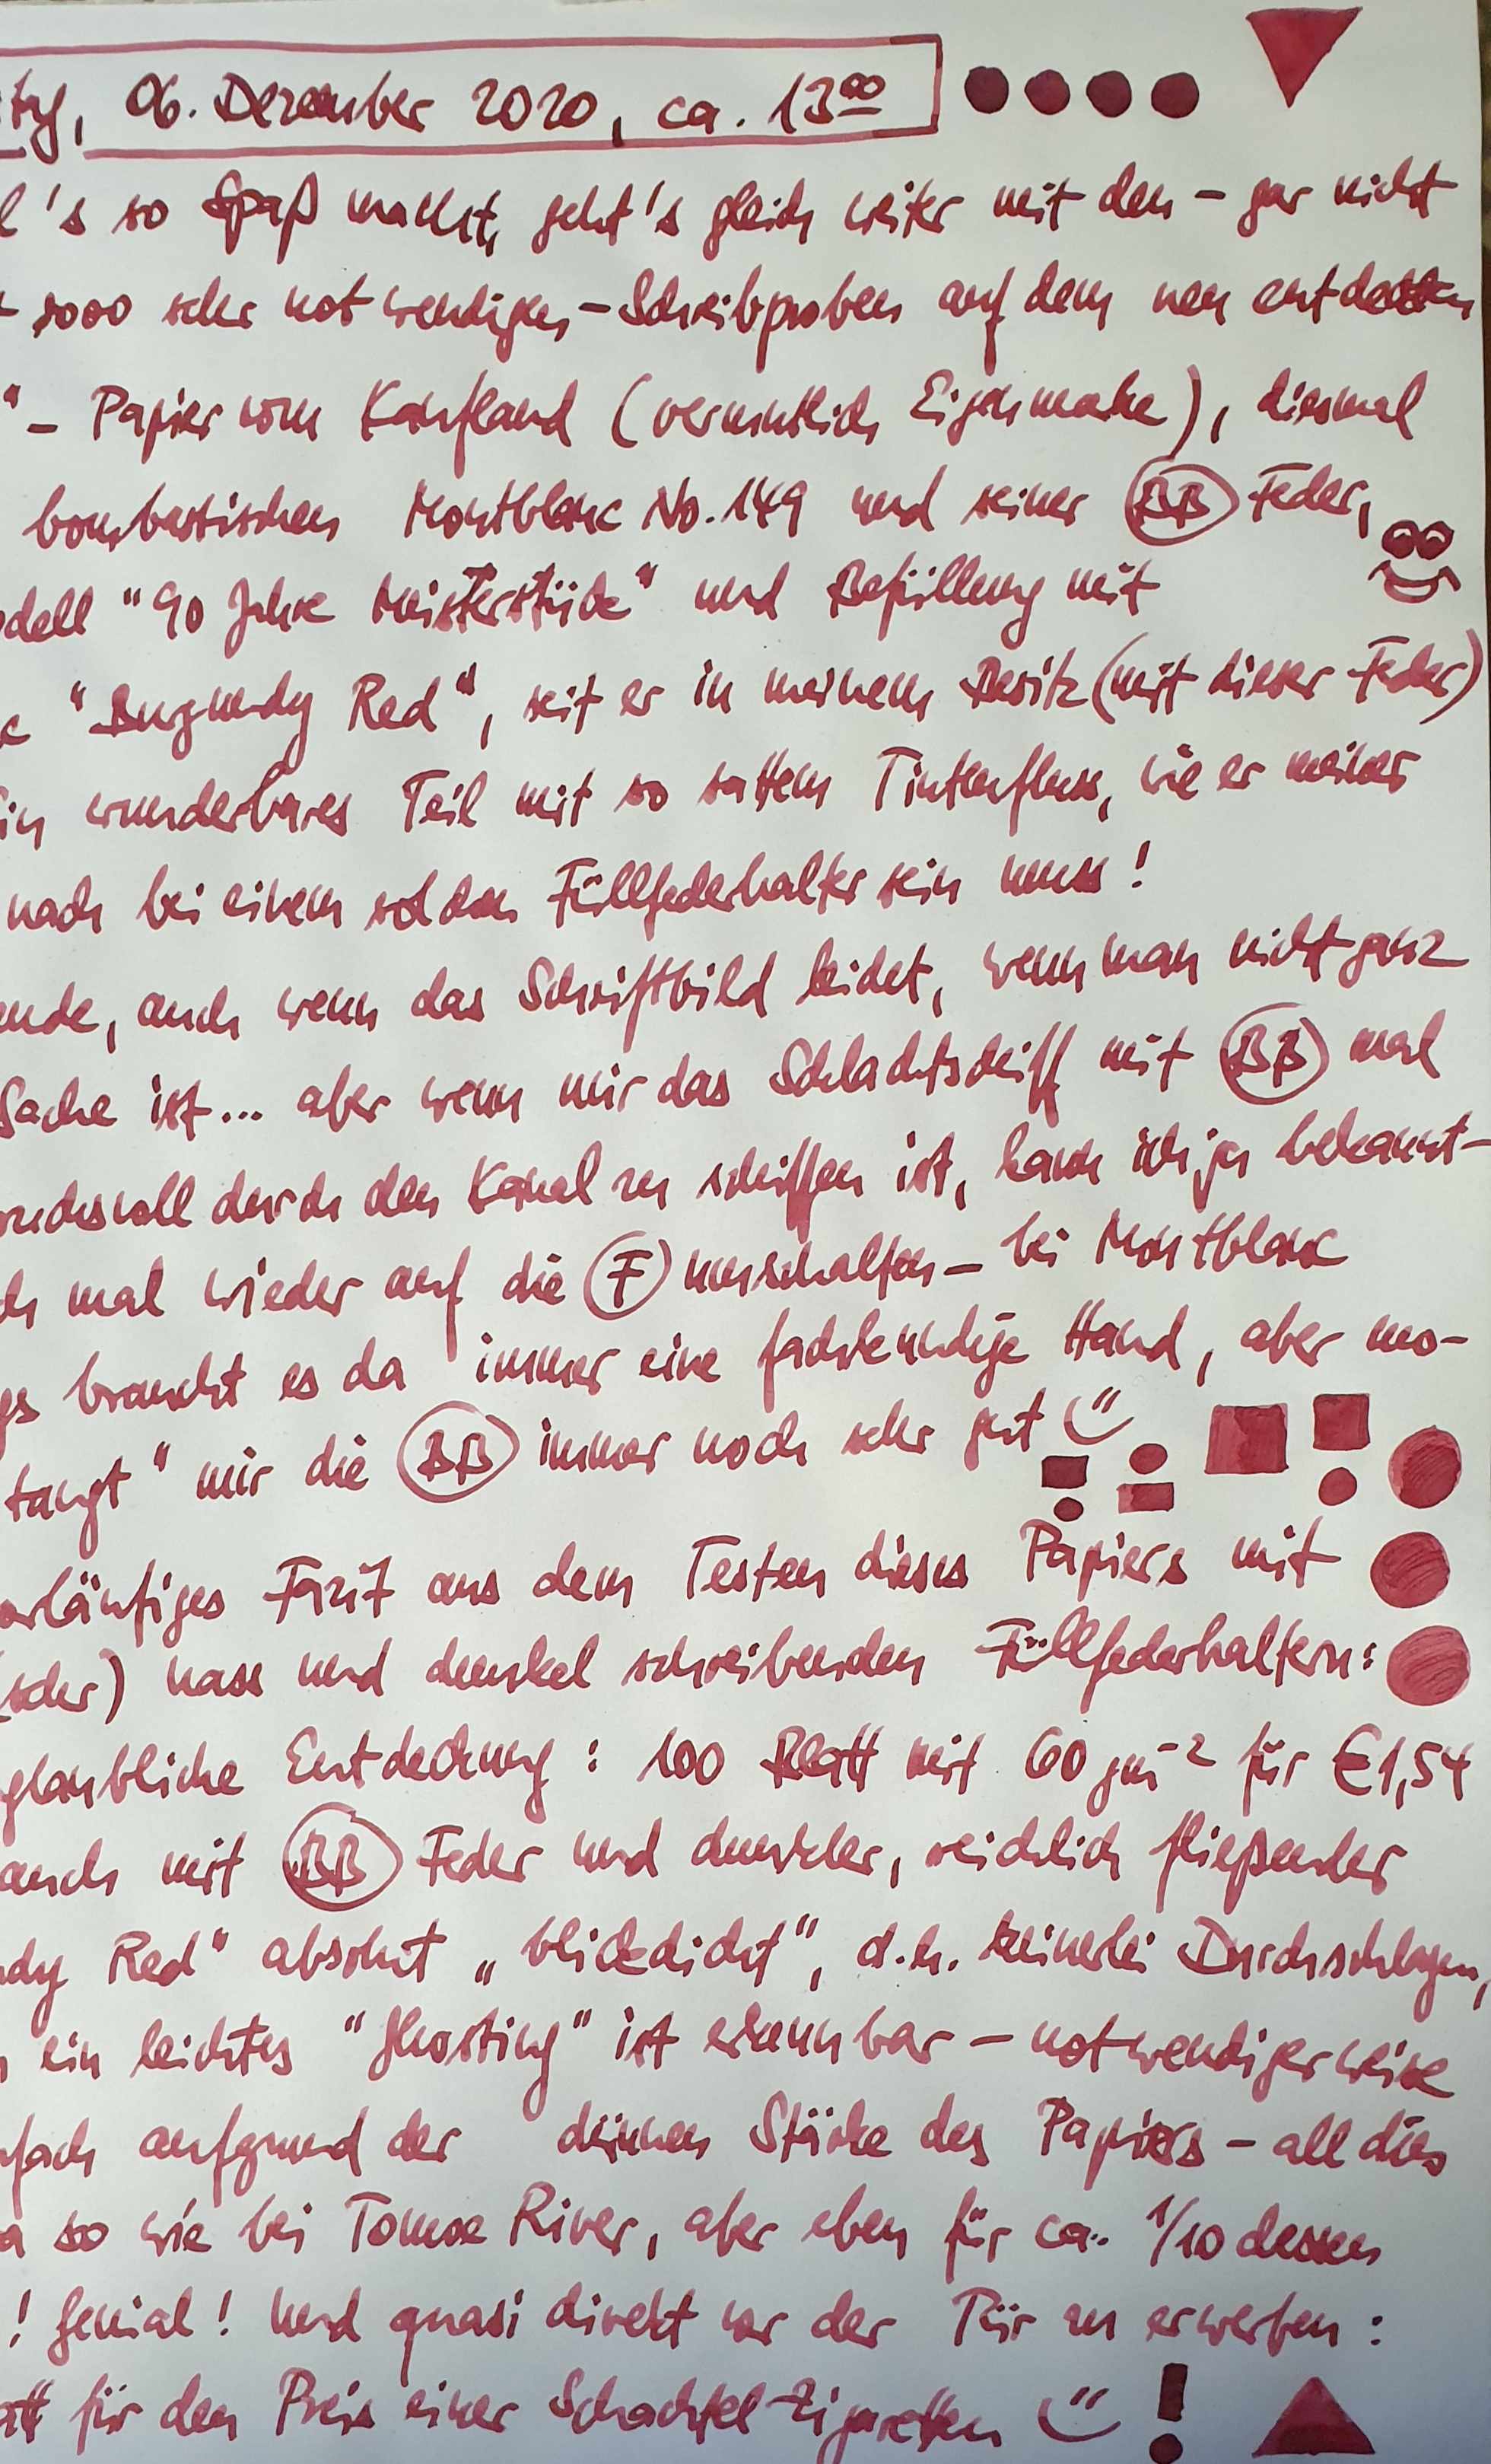 tag, 06. Dezember 2020, ca. 13⁰⁰
l's so Spaß macht, geht's gleich weiter mit den – gar nicht
sooo sehr notwendigen – Schreibproben auf dem neu entdeckten
" – Papier vom Kaufland (vermutlich Eigenmarke), diesmal
bombastischen Montblanc No. 149 und seiner BB Feder,
dell "90 Jahre Meisterstück" und Befüllung mit
c "Burgundy Red", seit er in meinem Besitz (mit dieser Feder)
in wunderbares Teil mit so sattem Tintenfluss, wie er meiner
nach bei einem solchen Füllfederhalter sein muss!
ende, auch wenn das Schriftbild leidet, wenn man nicht ganz
Sache ist... aber wenn mir das Schlachtschiff mit BB mal
ruchsvoll durch den Kanal zu schiffen ist, kann ich ja bekannt-
ch mal wieder auf die F umschalten – bei Montblanc
gs braucht es da immer eine fachkundige Hand, aber mo-
taugt" mir die BB immer noch sehr gut
orläufiges Fazit aus dem Testen dieses Papiers mit
(sehr) nass und dunkel schreibenden Füllfederhaltern:
glaubliche Entdeckung: 100 Blatt mit 60 gm⁻² für €1,54
auch mit BB Feder und dunkler, reichlich fließender
dy Red" absolut „blickdicht", d.h. keinerlei Durchschlagen,
ein leichtes "Ghosting" ist erkennbar – notwendigerweise
nfach aufgrund der dünnen Stärke des Papiers – all dies
a so wie bei Tomoe River, aber eben für ca. 1/10 dessen
! Genial! Und quasi direkt vor der Tür zu erwerben:
att für den Preis einer Schachtel Zigaretten !